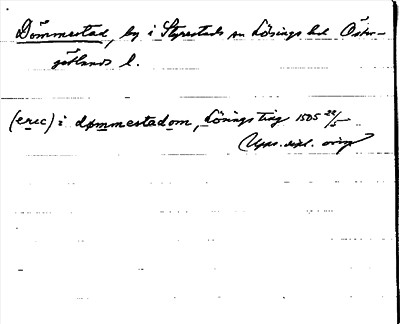 Dömmestad, by i Styrestads sn Lösings hd Öster-
götlands l.
(eric) i dømmestadom, Lönings ting 1505 22/5
Ups. dipl. orig